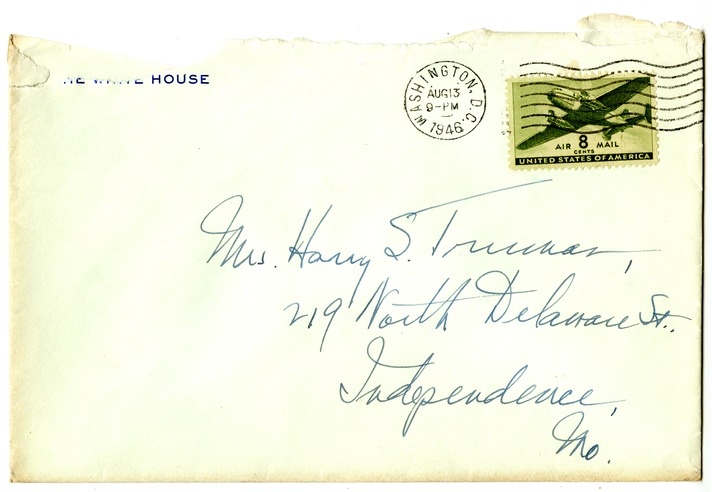 THE WHITE HOUSE
WASHINGTON, D.C.
AUG 13
9-PM
1946
AIR 8 MAIL
CENTS
UNITED STATES OF AMERICA
Mrs. Harry S. Truman,
219 North Delaware St.
Independence,
Mo.